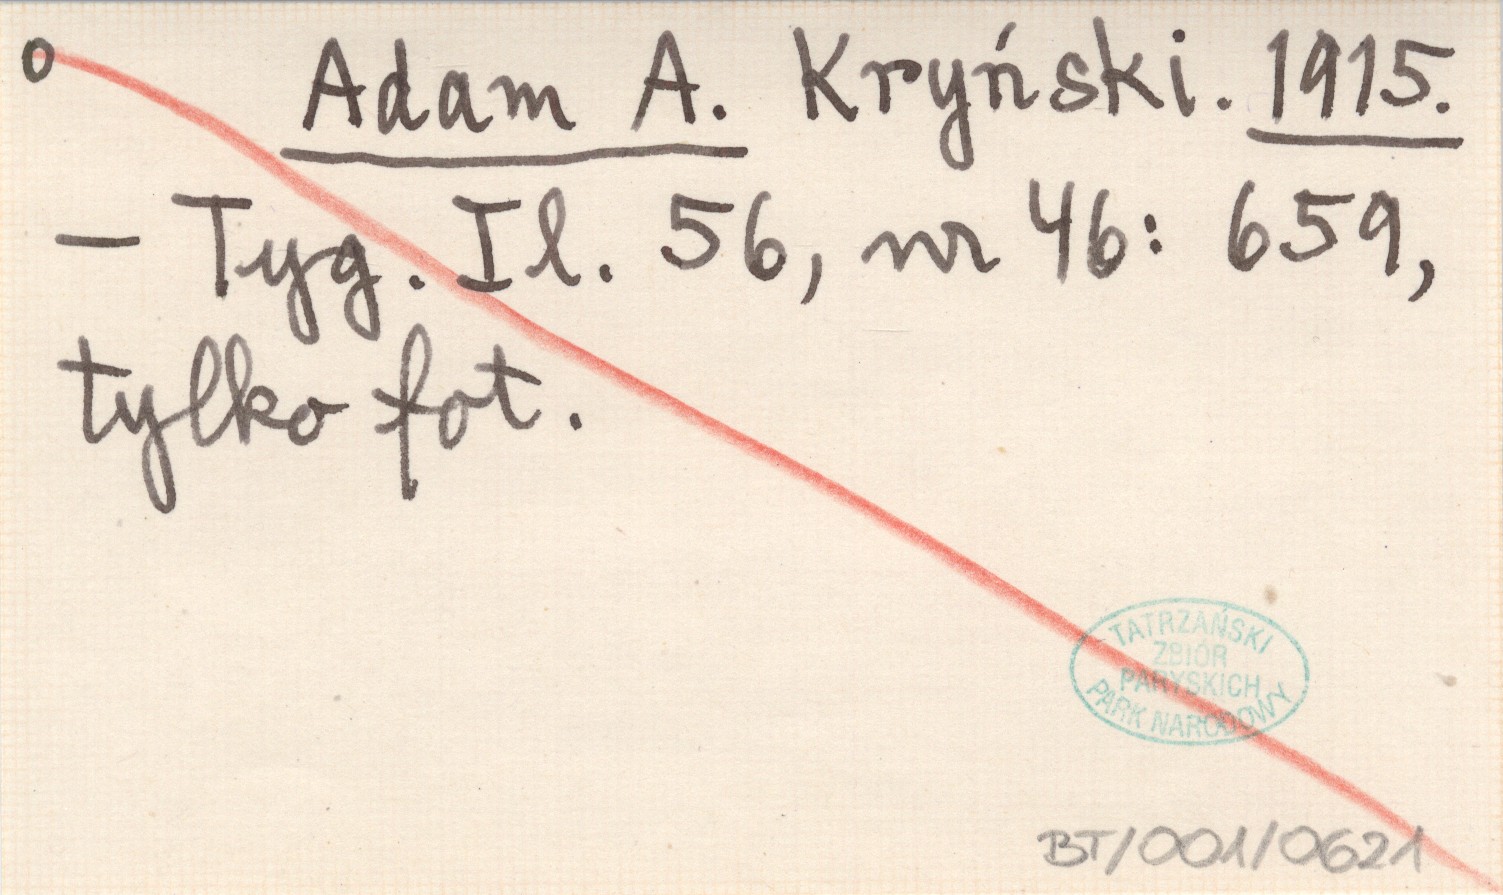 o Adam A. Kryński. 1915.
– Tyg. Il. 56, nr 46: 659,
tylko fot.
TATRZAŃSKI
ZBIÓR
PARYSKICH
PARK NARODOWY
BT/001/0621